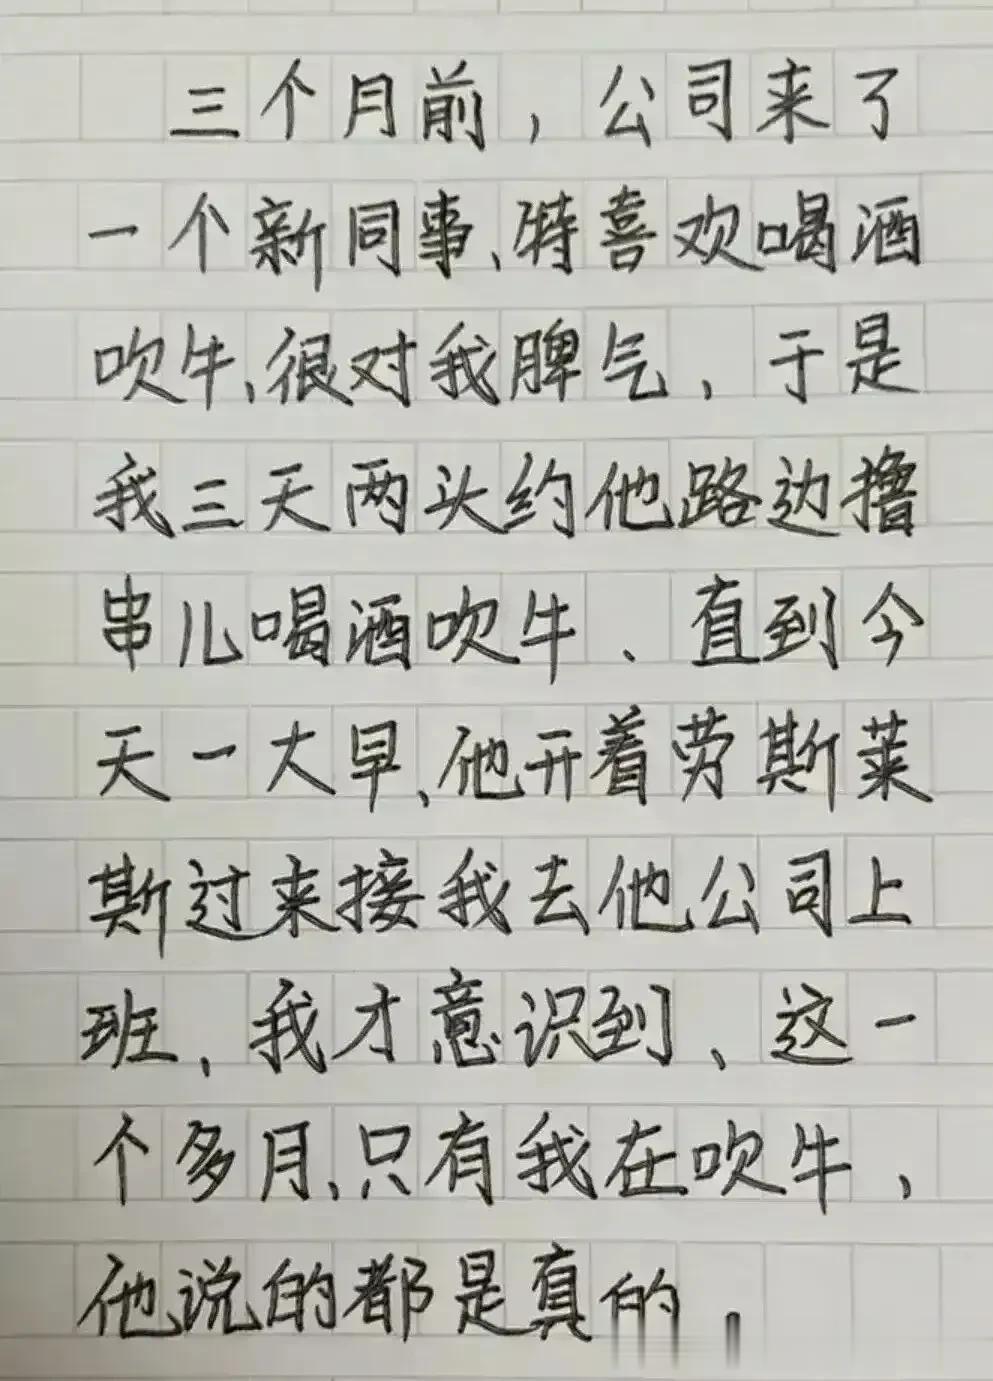 三个月前，公司来了
一个新同事、特喜欢喝酒
吹牛、很对我脾气、于是
我三天两头约他路边撸
串儿喝酒吹牛、直到今
天一大早、他开着劳斯莱
斯过来接我去他公司上
班、我才意识到、这一
个多月、只有我在吹牛，
他说的都是真的，